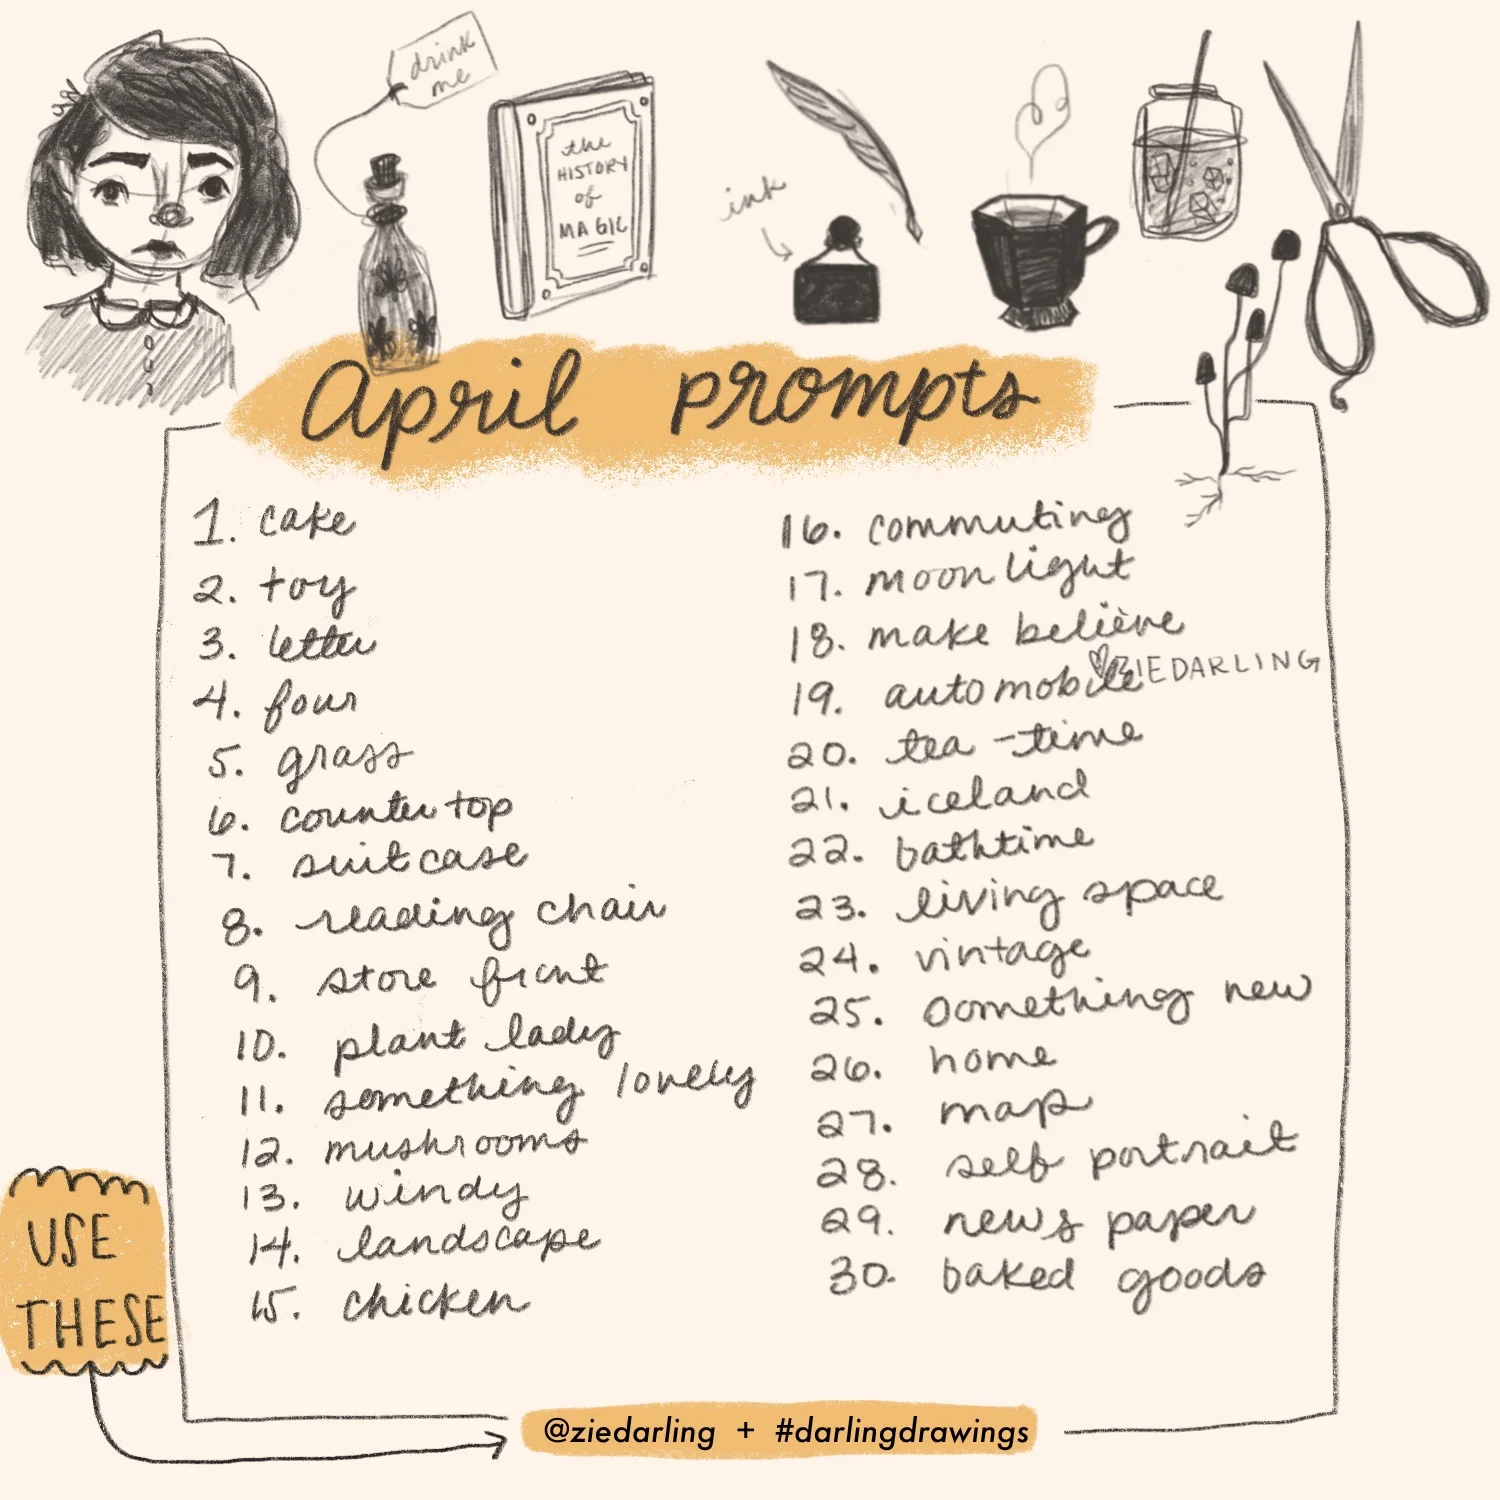 drink
me
the
HISTORY
of
MAGIC
ink
April prompts
1. cake
2. toy
3. letter
4. four
5. grass
6. countertop
7. suitcase
8. reading chair
9. store front
10. plant lady
11. something lovely
12. mushrooms
13. windy
14. landscape
15. chicken
16. commuting
17. moonlight
18. make believe
19. automobile
ZIEDARLING
20. tea-time
21. iceland
22. bathtime
23. living space
24. vintage
25. something new
26. home
27. map
28. self portrait
29. news paper
30. baked goods
USE
THESE
@ziedarling + #darlingdrawings